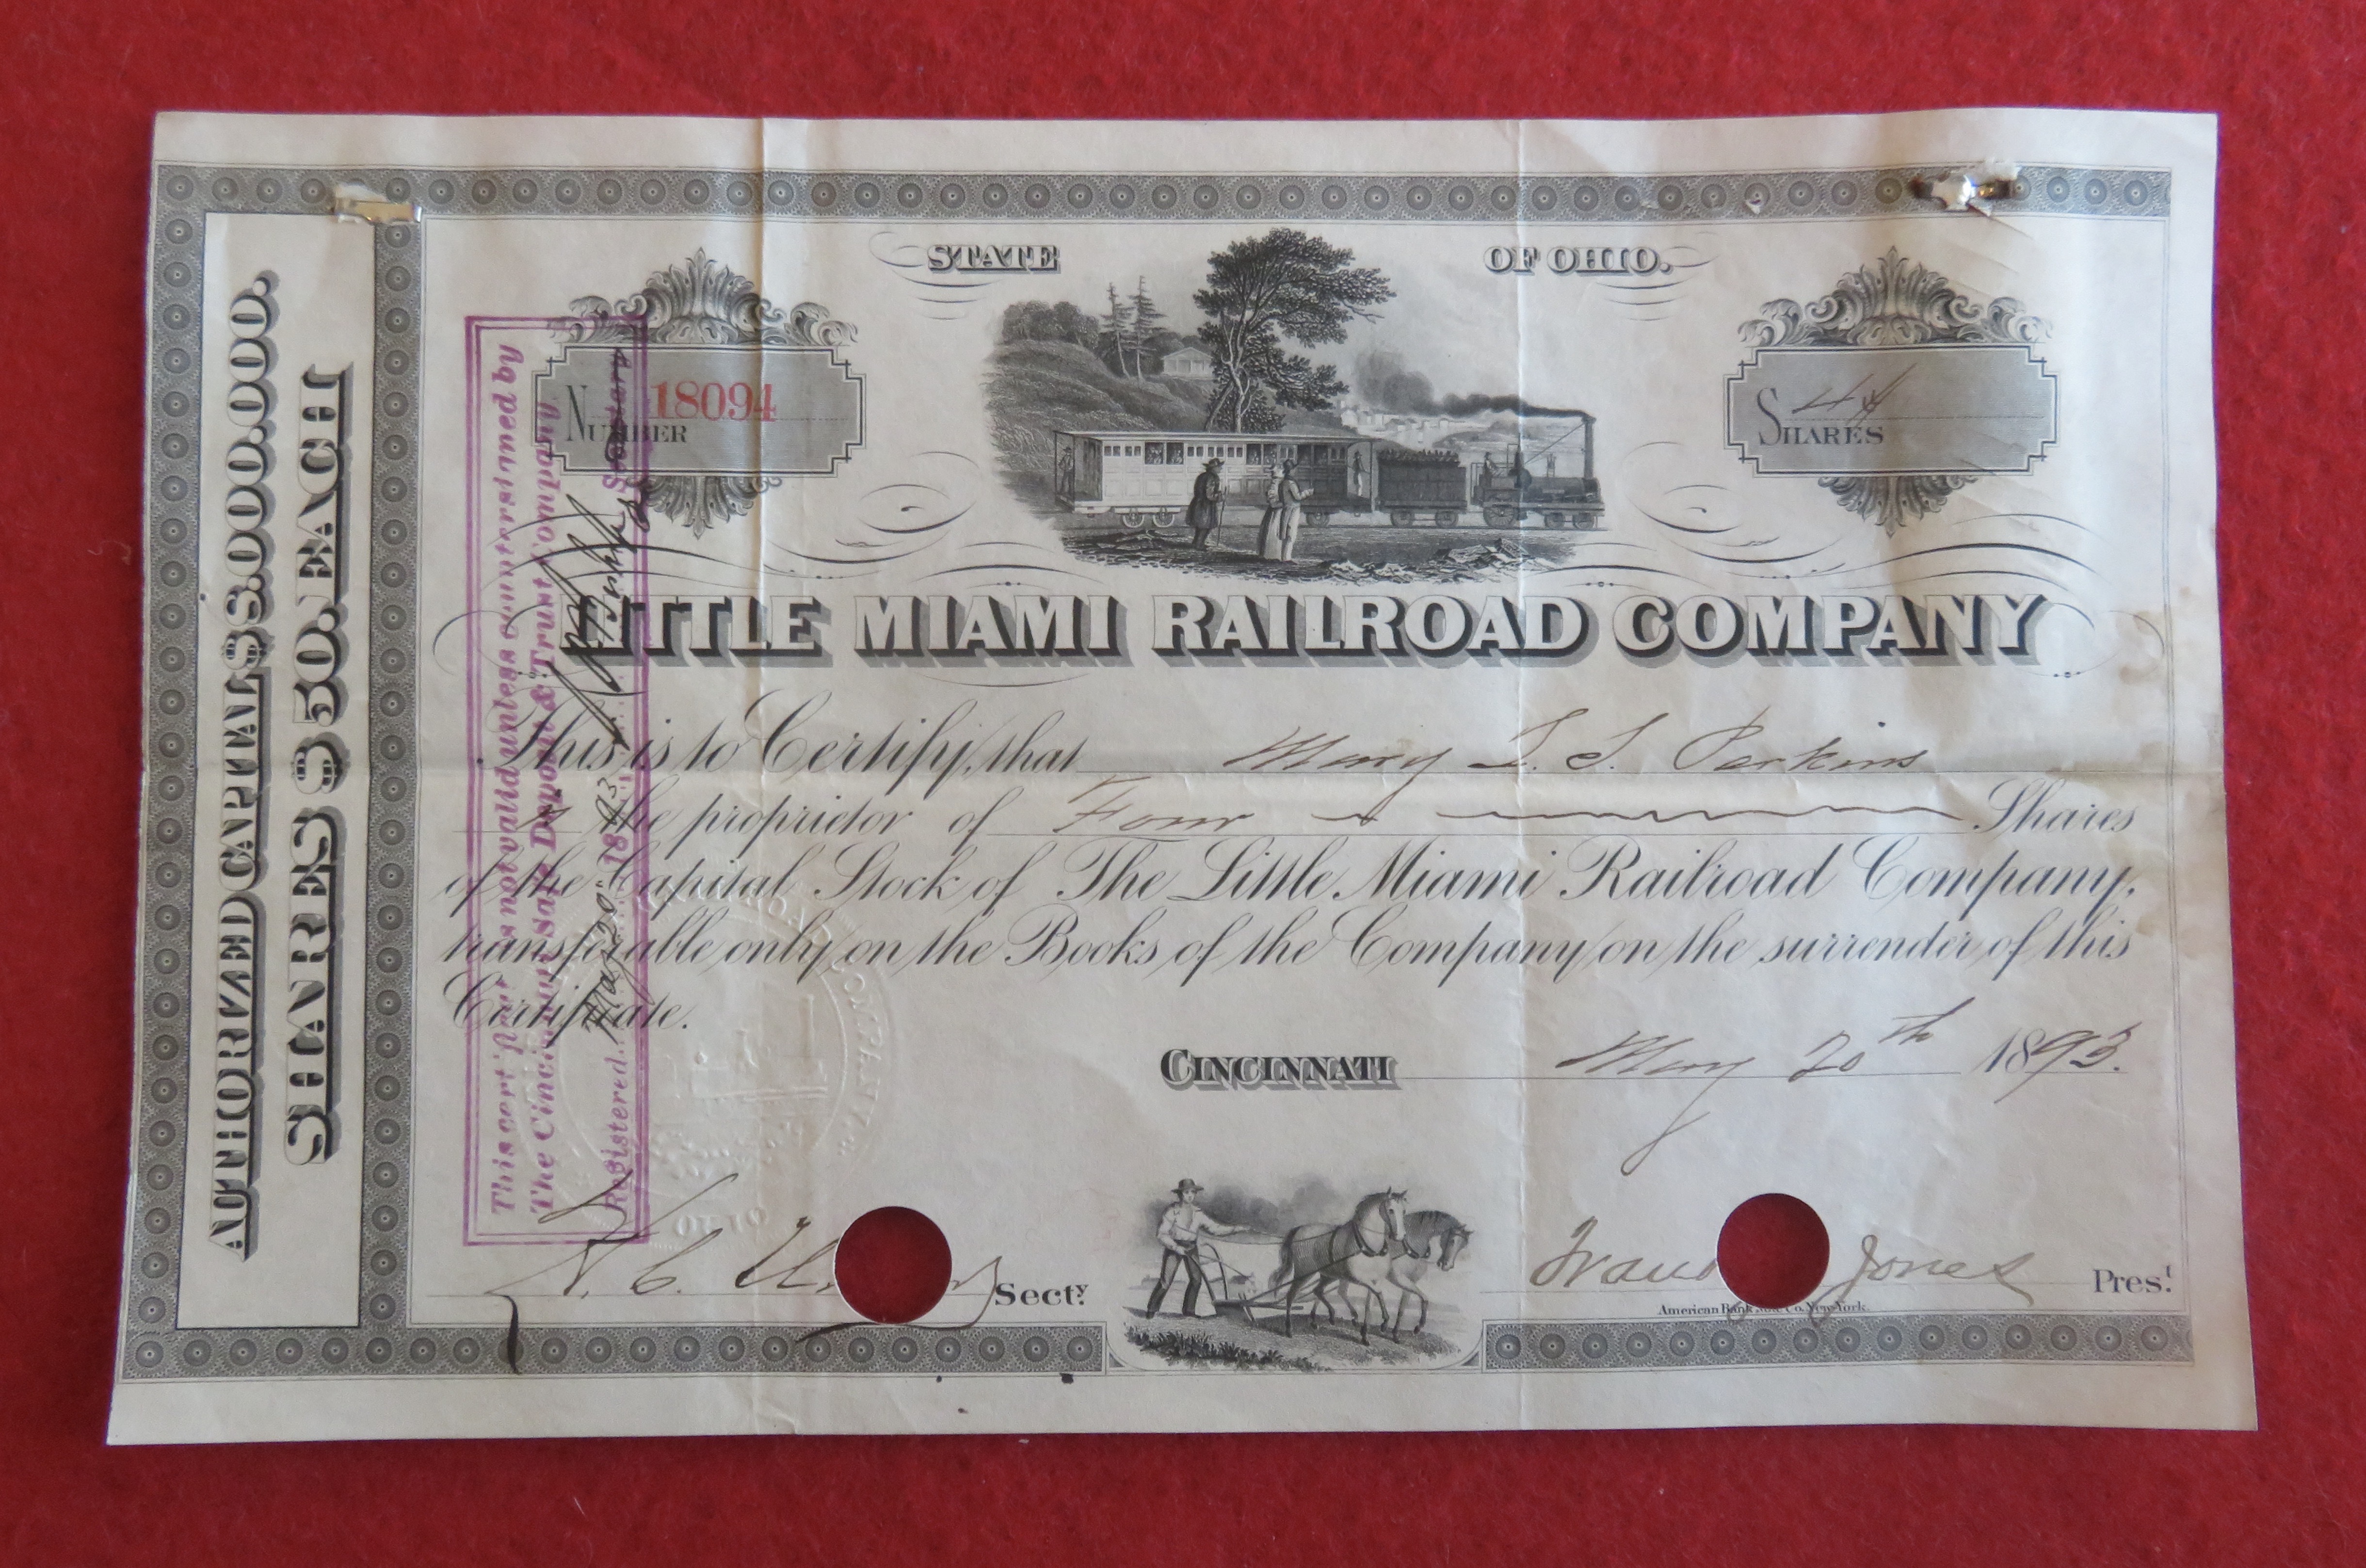 AUTHORIZED CAPITAL $8.000.000.
SHARES $50. EACH
STATE OF OHIO.
NUMBER 18094
SHARES 4
LITTLE MIAMI RAILROAD COMPANY
This is to Certify, that Mary L. S. Perkins
is the proprietor of Four Shares
of the Capital Stock of The Little Miami Railroad Company,
transferable only on the Books of the Company on the surrender of this
Certificate.
CINCINNATI May 20th 1893.
Secty.
Jones Prest.
American Bank Note Co. New York.
This cert'ficate is not valid unless countersigned by
The Cincinnati Safe Deposit & Trust Company
Registered May 20" 1893
Secretary
COMPANY
OHIO